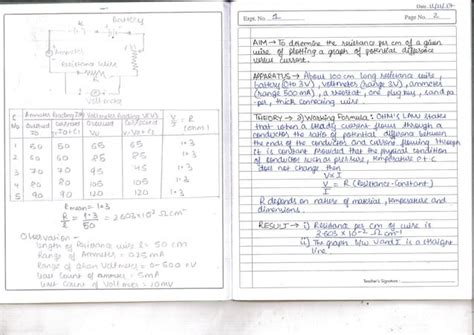 Battery
Ammeter
Resistance wire
R
Voltmeter
S
No
Ammeter Reading I(A)
Voltmeter Reading V(V)
V/I = R
(ohm)
Observed
Corrected
Observed
Corrected
1 50 50 65 65 1.3
2 65 85 85 1.3
3 70 70 95 1.3
4 80 80 105 105 1.3
5 90 90 120 120 1.3
Rmean = 1.3
R/l = 1.3/50 = 2.603×10² Ω cm⁻
Observation -
Length of Resistance wire l = 50 cm
Range of Ammeter =
Range of Given Voltmeter = 0-500 V
Least Count of Ammeter = 5mA
Least Count of Voltmeter = 10mV
Date
Expt. No. 1
Page No. 2
AIM → To determine the resistance per cm of a given
wire by plotting a graph of potential difference
versus current.
APPARATUS → About 100 cm long resistance wire,
battery (0 to 3V), voltmeter (range 3V), ammeter
(range 500mA), a rheostat, one plug key, sand pa-
-per, thick connecting wire.
THEORY → a) Working Formula: OHM's LAW states
that when a steady current flows through a
conductor the ratio of potential difference between
the ends of the conductor and current flowing through
it is constant provided that the physical condition
of conductor such as pressure, temperature etc
does not change then
V∝I
V/I = R (Resistance-Constant)
R depends on nature of material, temperature and
dimensions.
RESULT → i) Resistance per cm of wire is
2.605 × 10⁻² Ω cm⁻¹
ii) The graph b/w V and I is a straight
line.
Teacher's Signature :